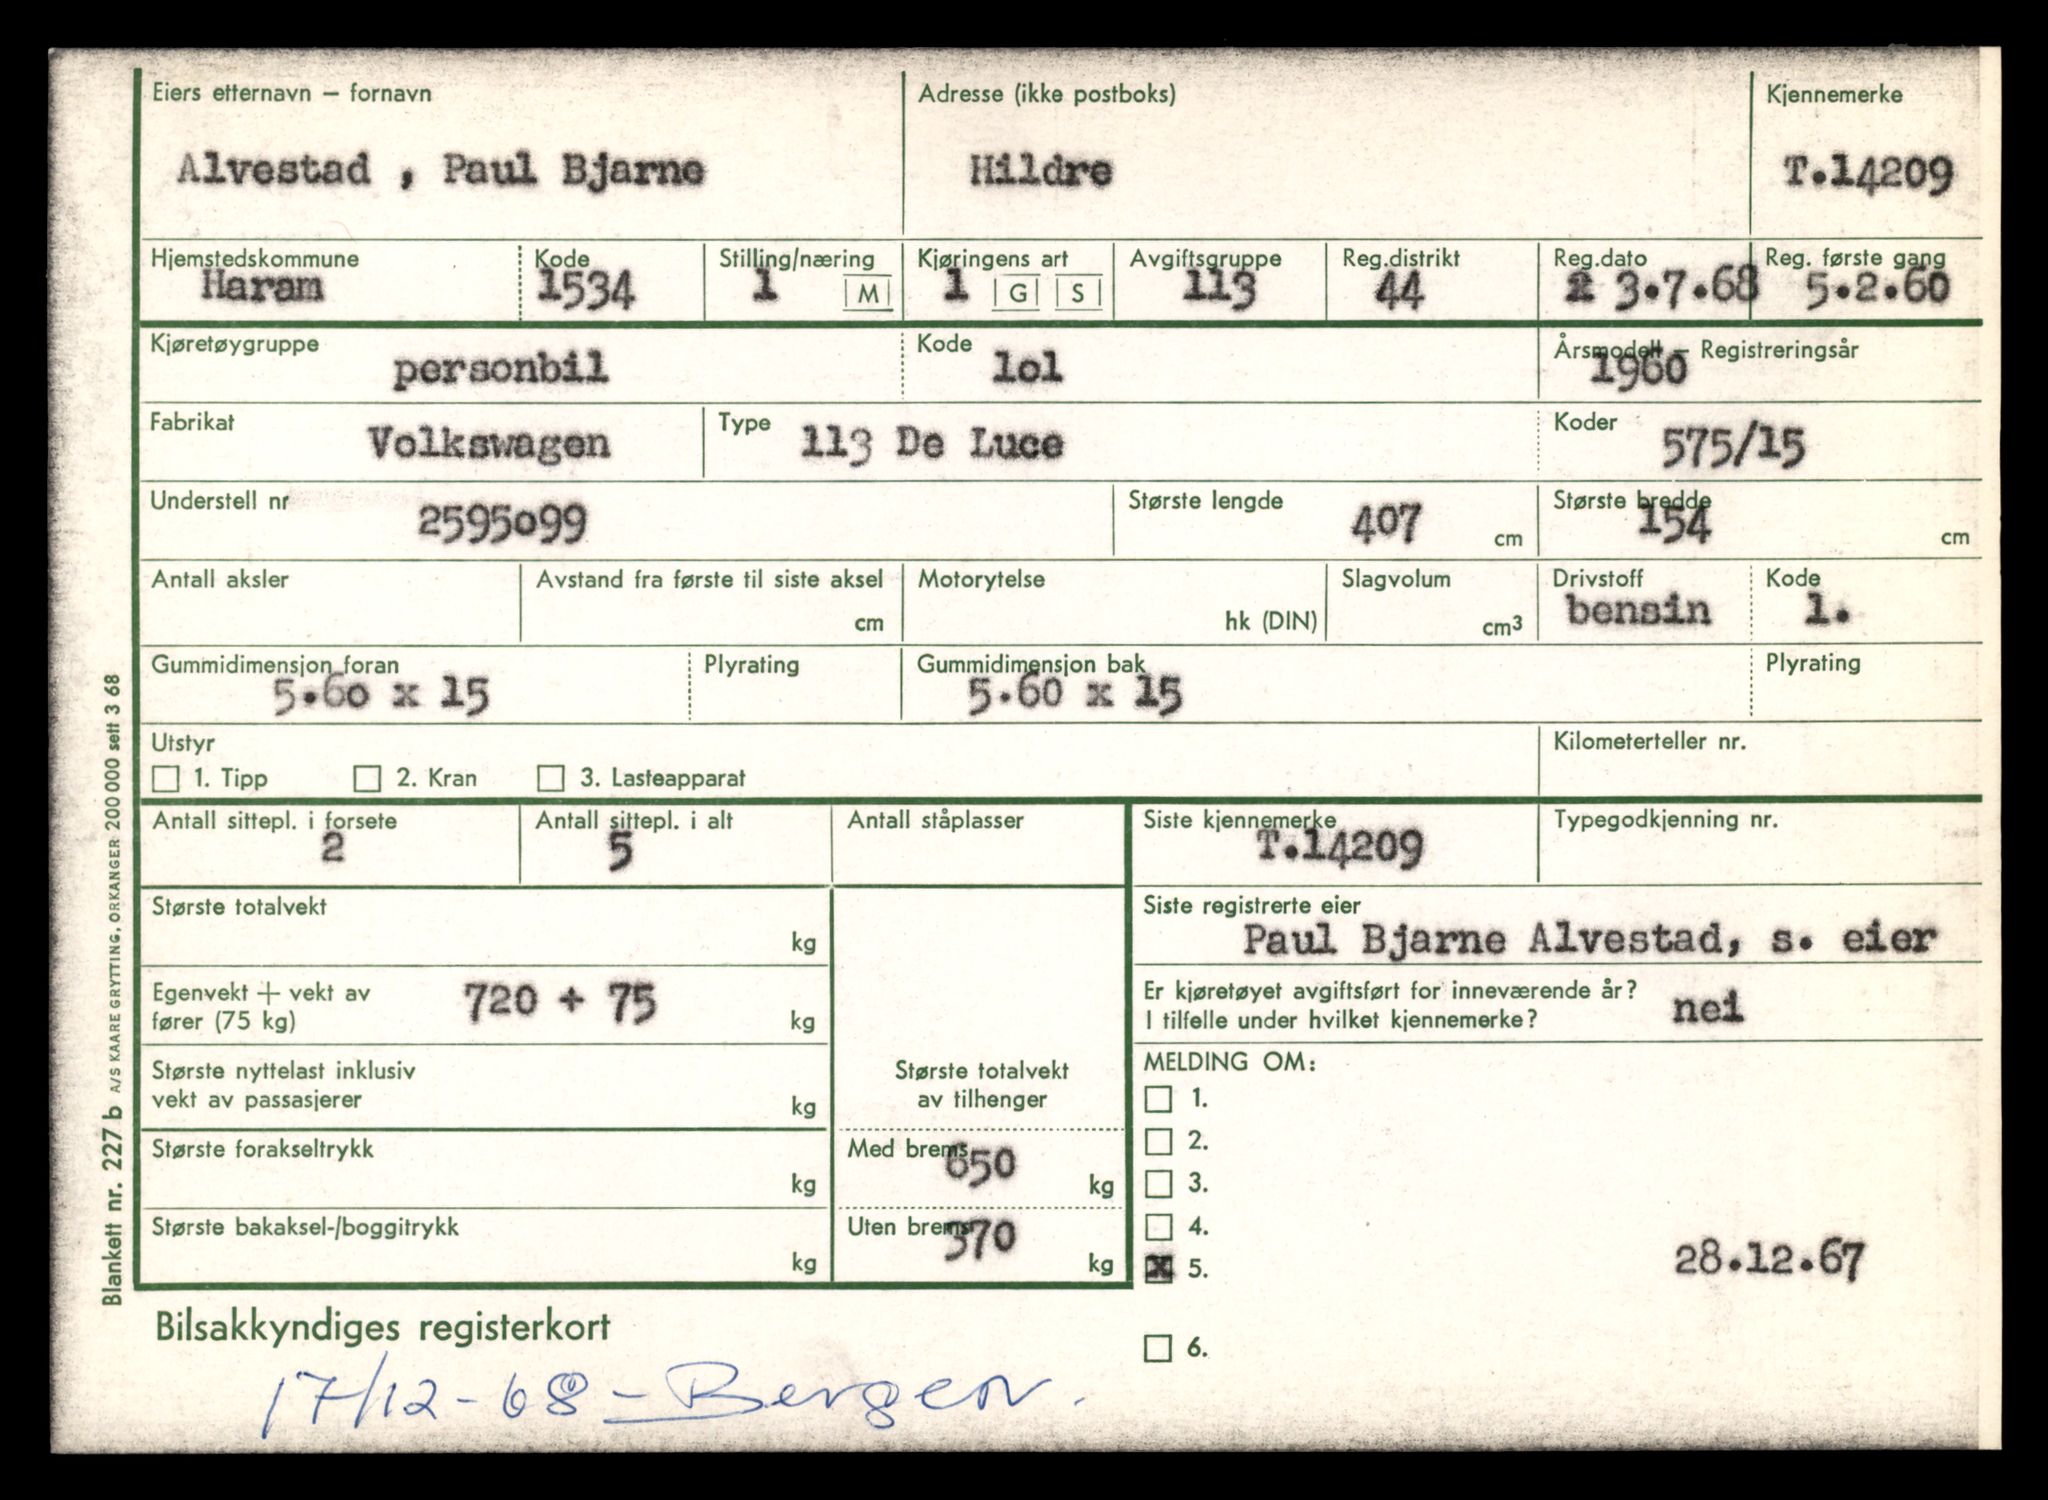 Eiers etternavn – fornavn Adresse (ikke postboks) Kjennemerke
Alvestad , Paul Bjarne Hildre T.14209
Hjemstedskommune Kode Stilling/næring Kjøringens art Avgiftsgruppe Reg.distrikt Reg.dato Reg. første gang
Haram 1534 1 M 1 G S 113 44 3.7.68 5.2.60
Kjøretøygruppe Kode Årsmodell – Registreringsår
personbil lol 1960
Fabrikat Type Koder
Volkswagen 113 De Luce 575/15
Understell nr Største lengde Største bredde
2595o99 407 cm 154 cm
Antall aksler Avstand fra første til siste aksel Motorytelse Slagvolum Drivstoff Kode
cm hk (DIN) cm3 bensin 1.
Gummidimensjon foran Plyrating Gummidimensjon bak Plyrating
5.60 x 15 5.60 x 15
Utstyr Kilometerteller nr.
1. Tipp 2. Kran 3. Lasteapparat
Antall sittepl. i forsete Antall sittepl. i alt Antall ståplasser Siste kjennemerke Typegodkjenning nr.
2 5 T.14209
Største totalvekt kg
Siste registrerte eier
Paul Bjarne Alvestad, s. eier
Egenvekt + vekt av
fører (75 kg) 720 + 75 kg
Er kjøretøyet avgiftsført for inneværende år?
I tilfelle under hvilket kjennemerke? nei
Største nyttelast inklusiv
vekt av passasjerer kg
Største totalvekt
av tilhenger
MELDING OM:
1.
2.
3.
4.
x 5. 28.12.67
6.
Største forakseltrykk kg
Med brems 650 kg
Største bakaksel-/boggitrykk kg
Uten brems 370 kg
Bilsakkyndiges registerkort
17/12-68 – Bergen.
Blankett nr. 227 b A/S KAARE GRYTTING, ORKANGER 200 000 sett 3 68